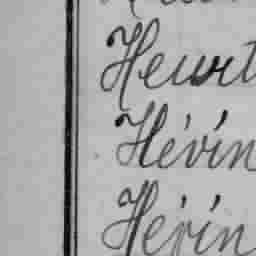 Heurt
Hévin
Hérin